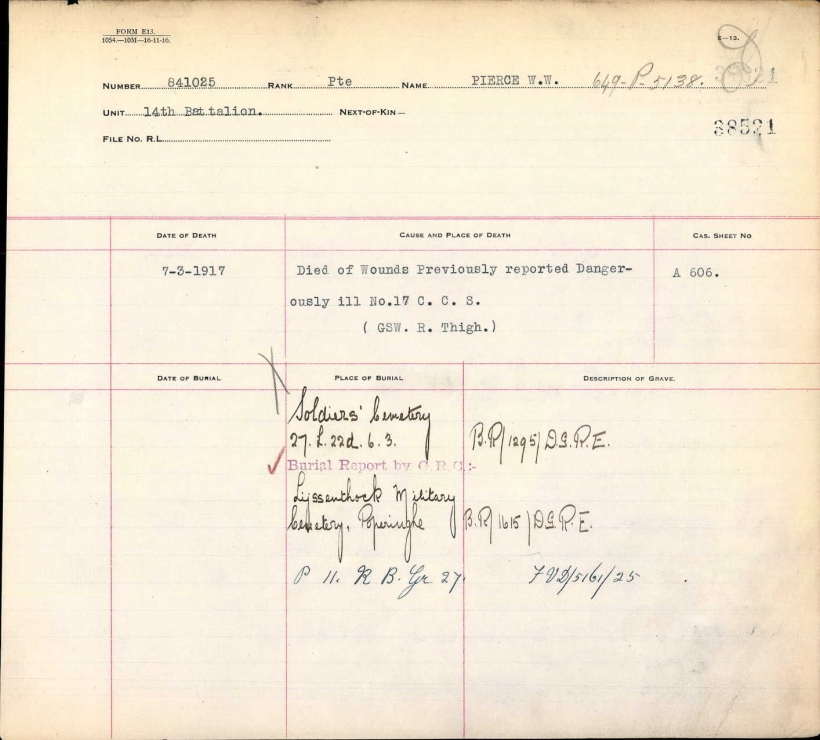 FORM E13.
1054.—10M—16-11-16.
E—13.
NUMBER 841025 RANK Pte NAME PIERCE W.W. 649-P-5138.
UNIT 14th Battalion. NEXT-OF-KIN—
38521
FILE NO. R.L.
DATE OF DEATH CAUSE AND PLACE OF DEATH CAS. SHEET NO
7-3-1917 Died of Wounds Previously reported Danger- A 606.
ously ill No.17 C. C. S.
( GSW. R. Thigh.)
DATE OF BURIAL PLACE OF BURIAL DESCRIPTION OF GRAVE.
Soldiers' Cemetery
27. L. 22d. 6. 3. B.R/1295/D.G.R.E.
Burial Report by G.R.C:-
Lijssenthock Military
Cemetery, Poperinghe B.R/1615/D.G.R.E.
P 11. R B. Gr 27.